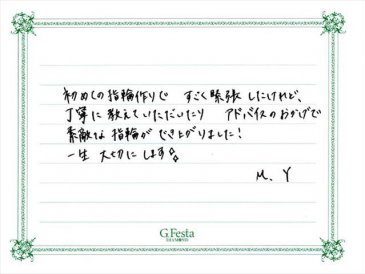 初めての指輪作りで すごく緊張したけれど、
丁寧に教えていただいたり アドバイスのおかげで
素敵な指輪ができ上がりました!
一生 大切にします
M. Y
G.Festa
DIAMOND